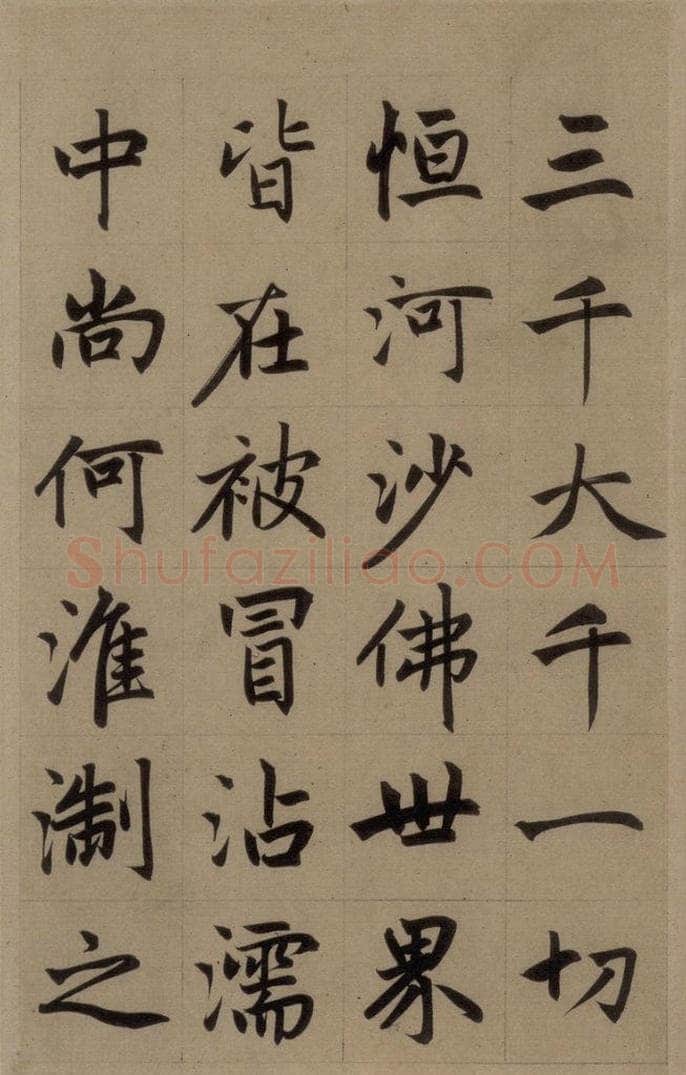 三千大千一切
恒河沙佛世界
皆在被冒沾濡
中尚何淮淛之
Shufaziliao.COM